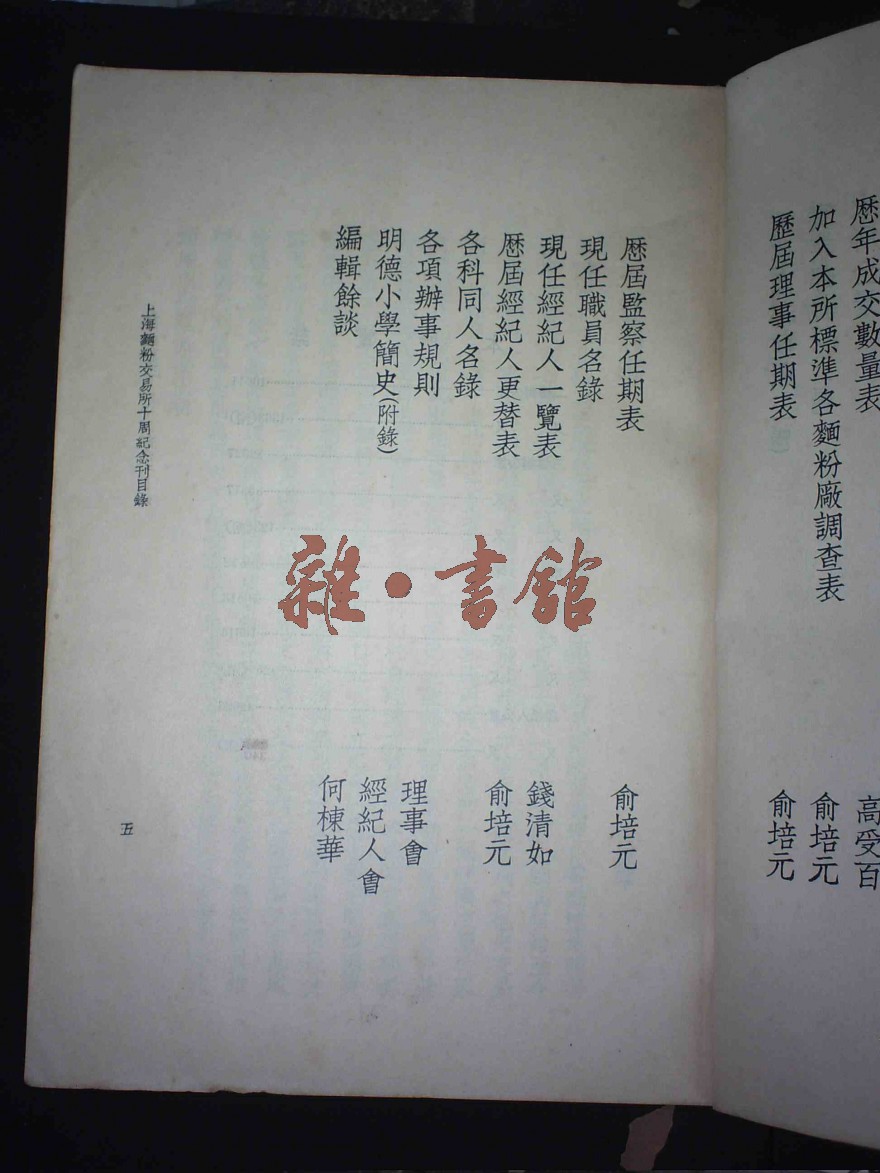 歷年成交數量表 高受百
加入本所標準各麵粉廠調查表 俞培元
歷屆理事任期表 俞培元
歷屆監察任期表 俞培元
現任職員名錄
現任經紀人一覽表 錢清如
歷屆經紀人更替表 俞培元
各科同人名錄
各項辦事規則 理事會
明德小學簡史(附錄) 經紀人會
編輯餘談 何棟華
上海麵粉交易所十周紀念刊目錄 五
雜·書館